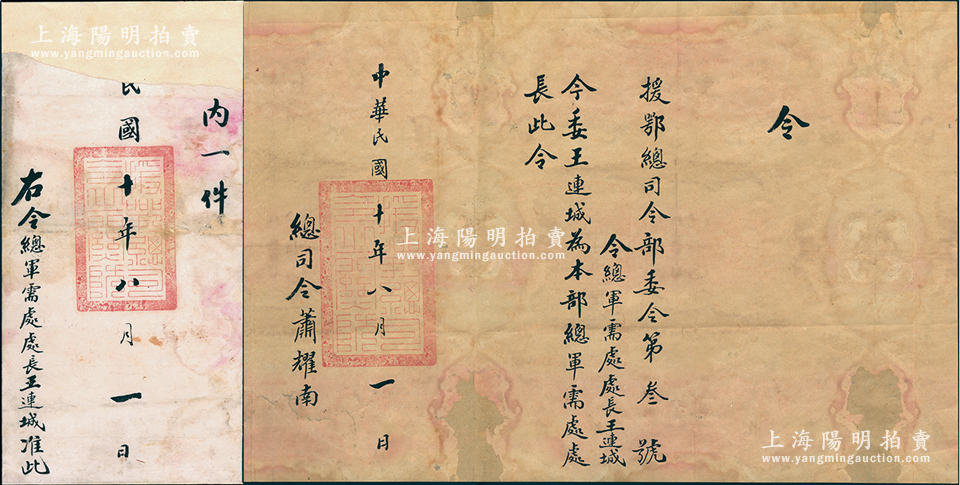 令
援鄂總司令部委令第叁號
令總軍需處處長王連城
令委王連城為本部總軍需處處
長此令
中華民國十年八月一日
總司令蕭耀南
內一件
民國十年八月一日
右令總軍需處處長王連城准此
上海陽明拍賣
www.yangmingauction.com
上海陽明拍賣
www.yangmingauction.com
上海陽明拍賣
www.yangmingauction.com